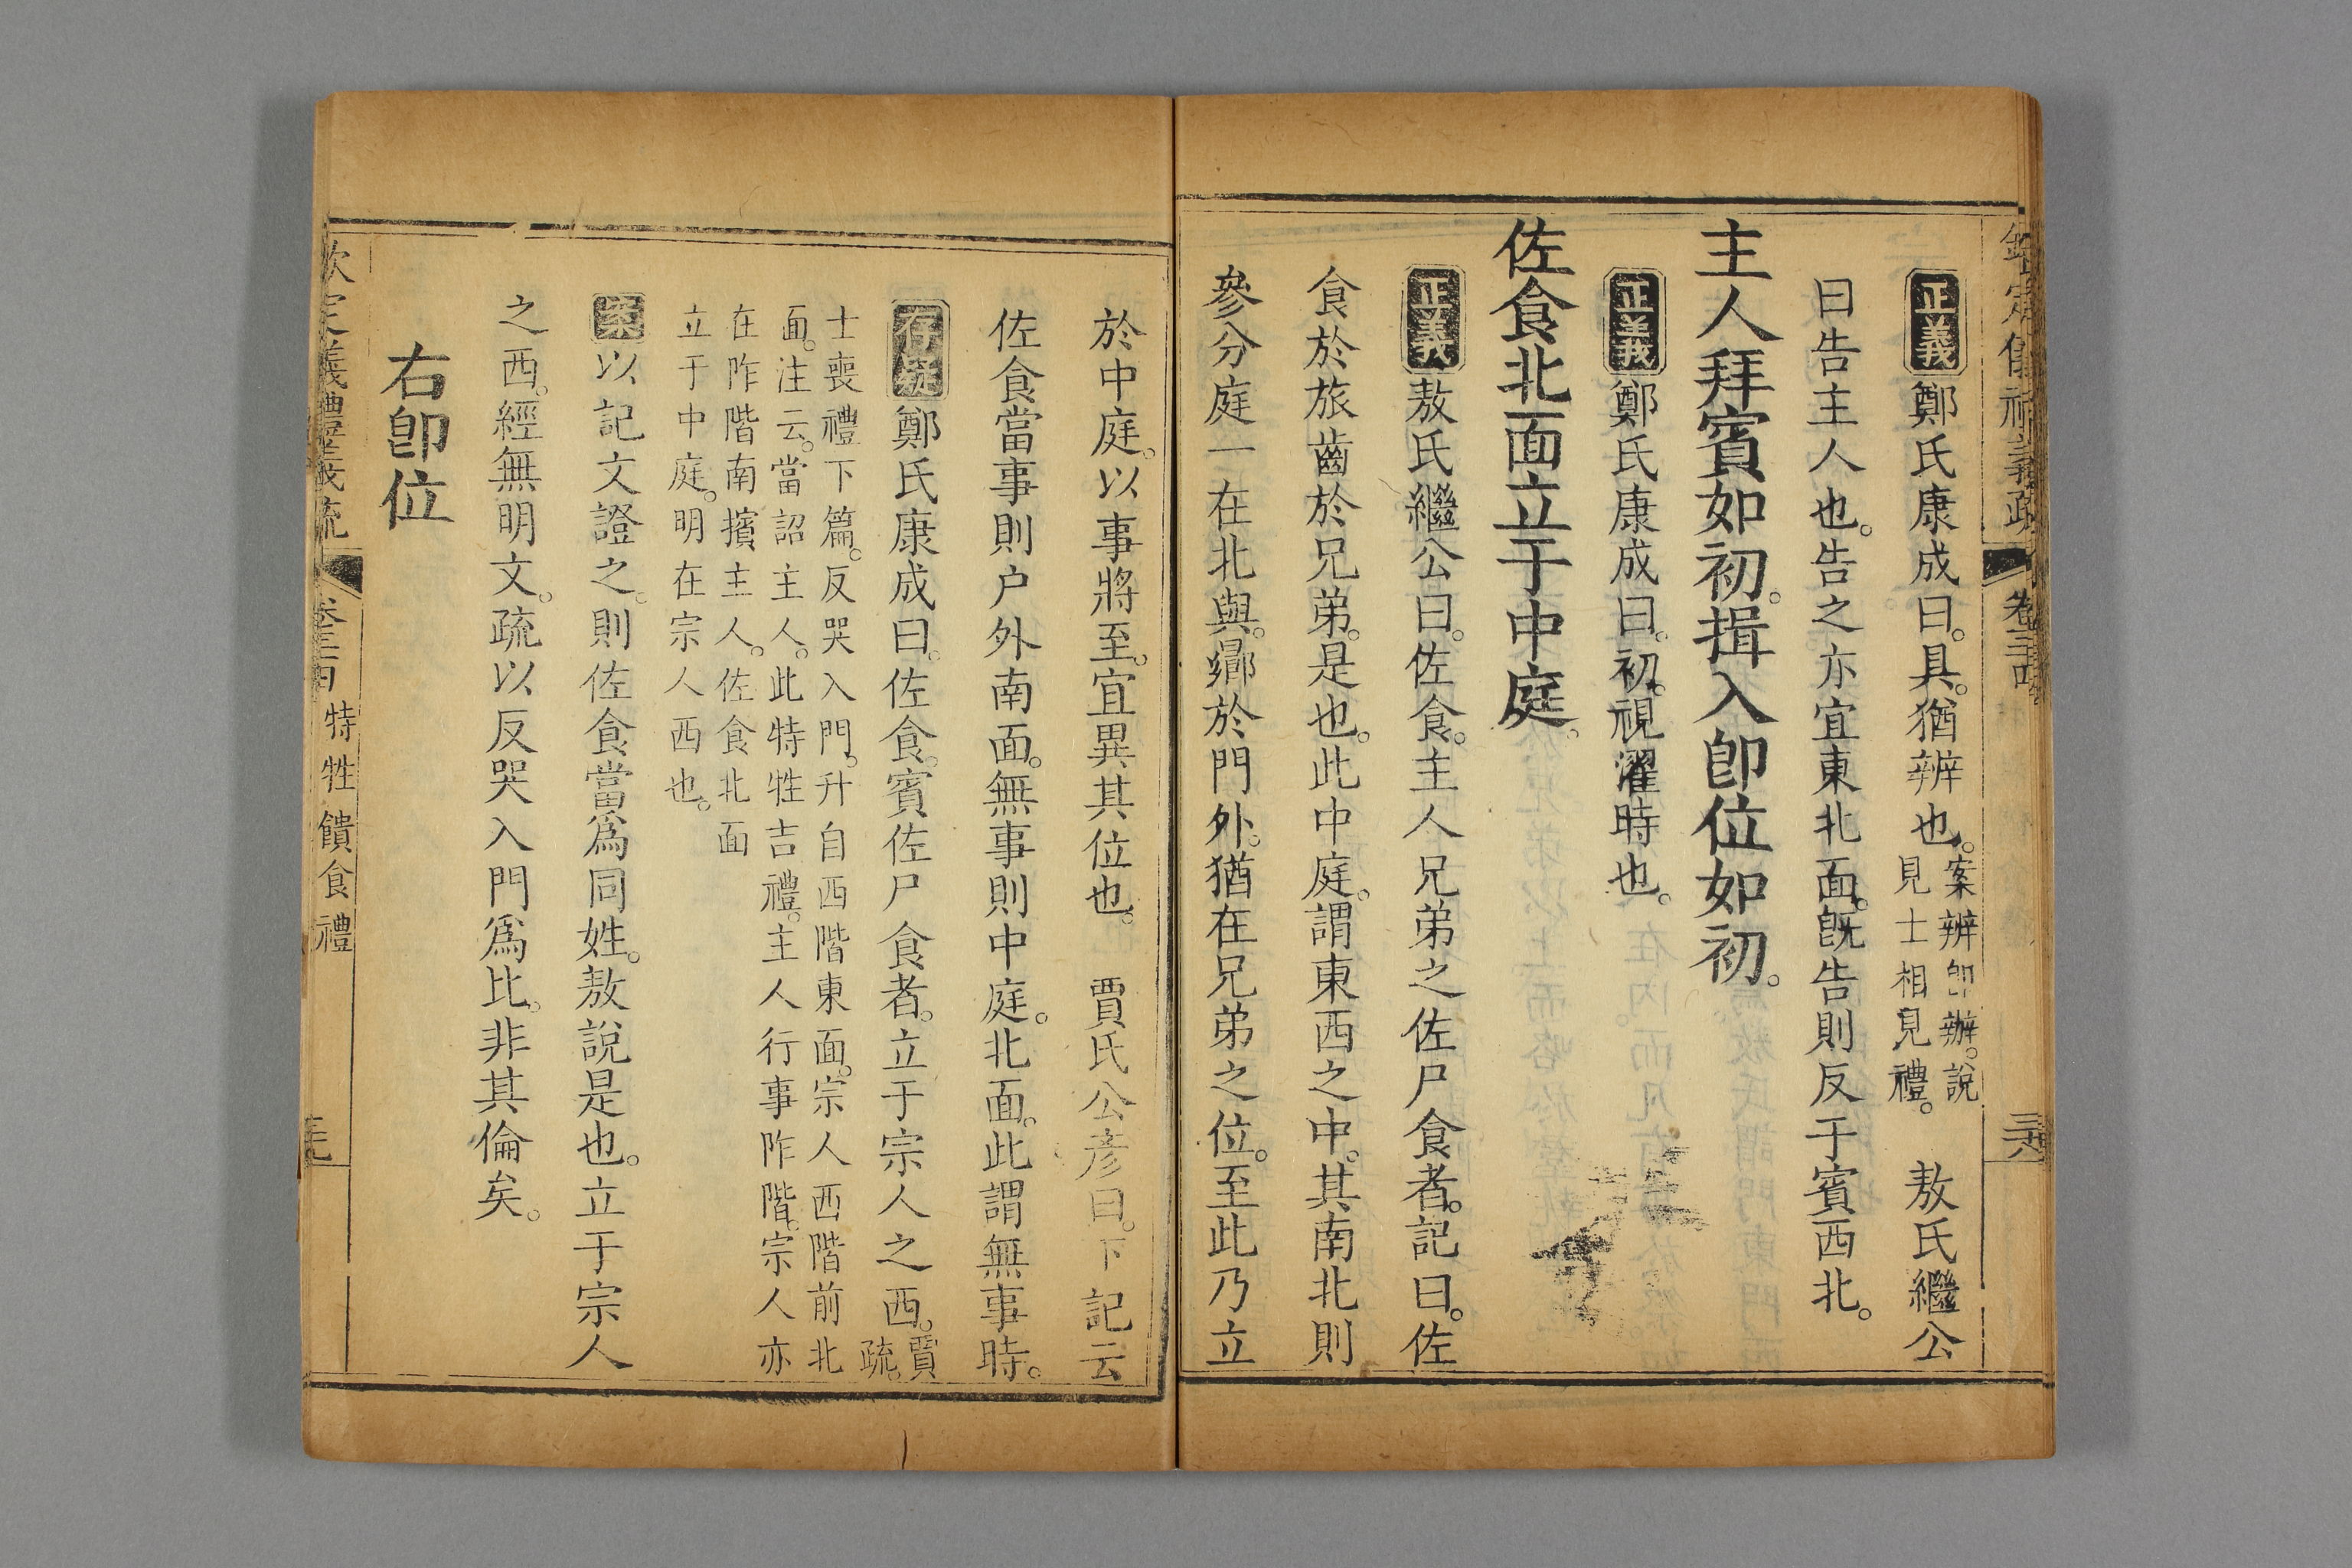 欽定儀禮義疏 卷三四
正義鄭氏康成曰。具。猶辨也。案辨卽辦。說見士相見禮。 敖氏繼公
曰告主人也。告之亦宜東北面。旣告則反于賓西北。
主人拜賓如初。揖入卽位如初。
正義鄭氏康成曰。初。視濯時也。
佐食北面立于中庭。
正義敖氏繼公曰。佐食。主人兄弟之佐尸食者。記曰。佐
食於旅齒於兄弟。是也。此中庭。謂東西之中。其南北則
參分庭一在北與。鄉於門外。猶在兄弟之位。至此乃立
於中庭。以事將至。宜異其位也。 賈氏公彥曰。下記云
佐食當事則户外南面。無事則中庭。北面。此謂無事時。
存疑鄭氏康成曰。佐食。賓佐尸食者。立于宗人之西。賈疏。
士喪禮下篇。反哭入門。升自西階東面。宗人西階前北
面。注云。當詔主人。此特牲吉禮。主人行事阼階。宗人亦
在阼階南擯主人。佐食北面
立于中庭。明在宗人西也。
案以記文證之。則佐食當爲同姓。敖說是也。立于宗人
之西。經無明文。疏以反哭入門爲比。非其倫矣。
右卽位
欽定儀禮義疏 卷三四 特牲饋食禮